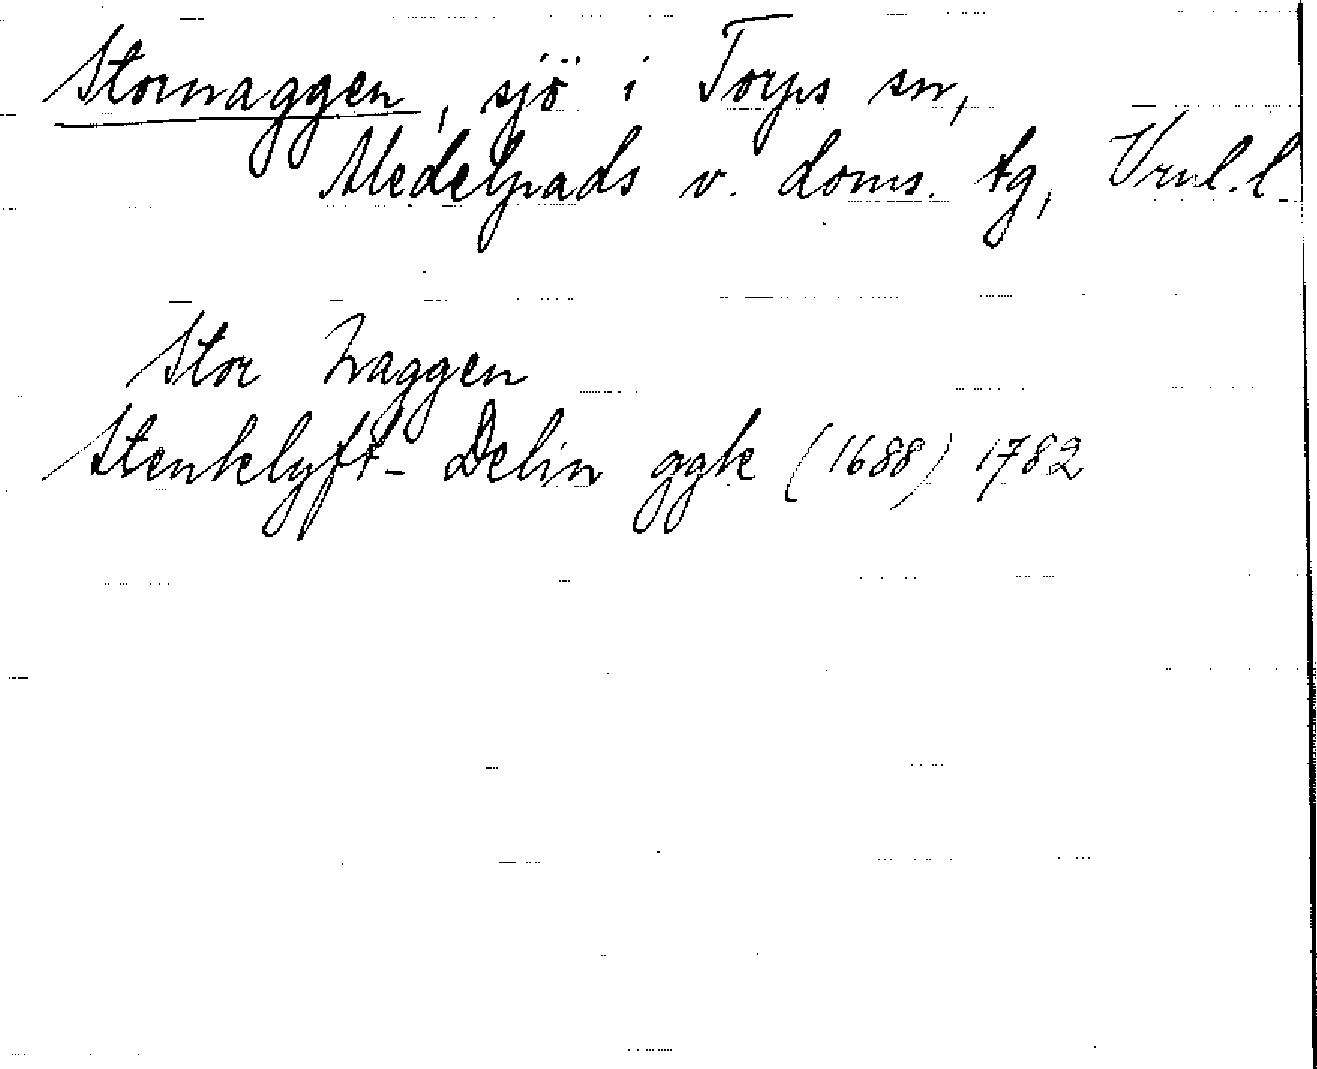 Stornaggen, sjö i Torps sn,
Medelpads v. doms. tg, Vrnl. l.
Stor Naggen
Stenklyft- Delin ggk (1688) 1782